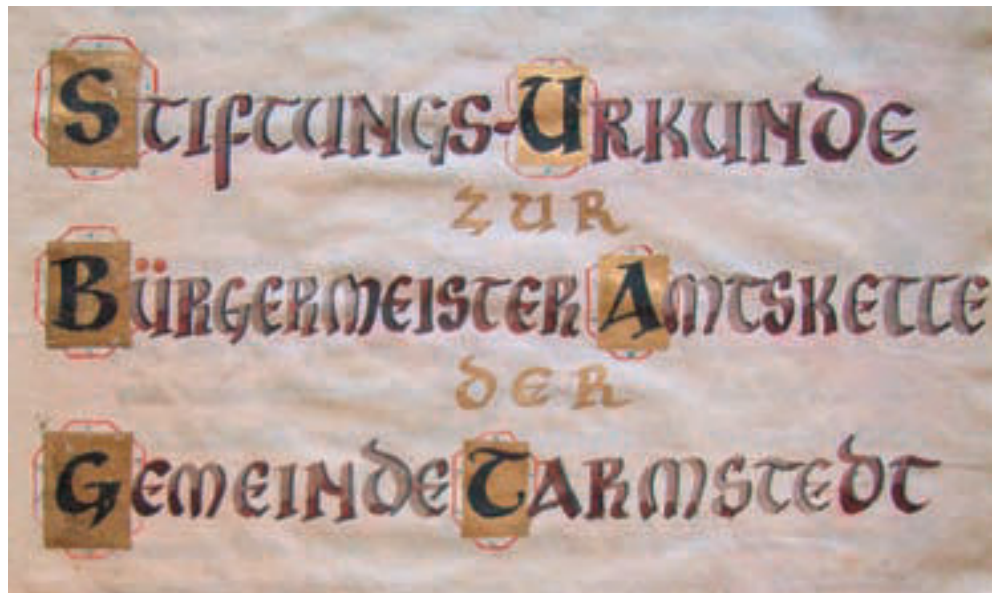 Stiftungs-Urkunde
zur
Bürgermeister Amtskette
der
Gemeinde Tarmstedt